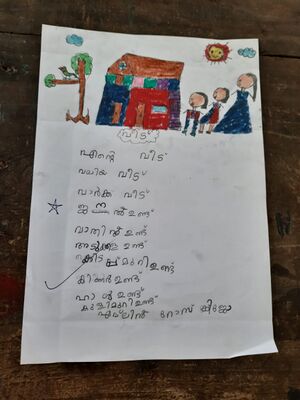 വീട്
എന്റെ വീട്
വലിയ വീട്
വാർക്ക വീട്
ജനൽ ഉണ്ട്
വാതിൽ ഉണ്ട്
അടുക്കള ഉണ്ട്
കിടപ്പുമുറി ഉണ്ട്
കിണർ ഉണ്ട്
ഹാൾ ഉണ്ട്
കുളിമുറി ഉണ്ട്
റോസ്